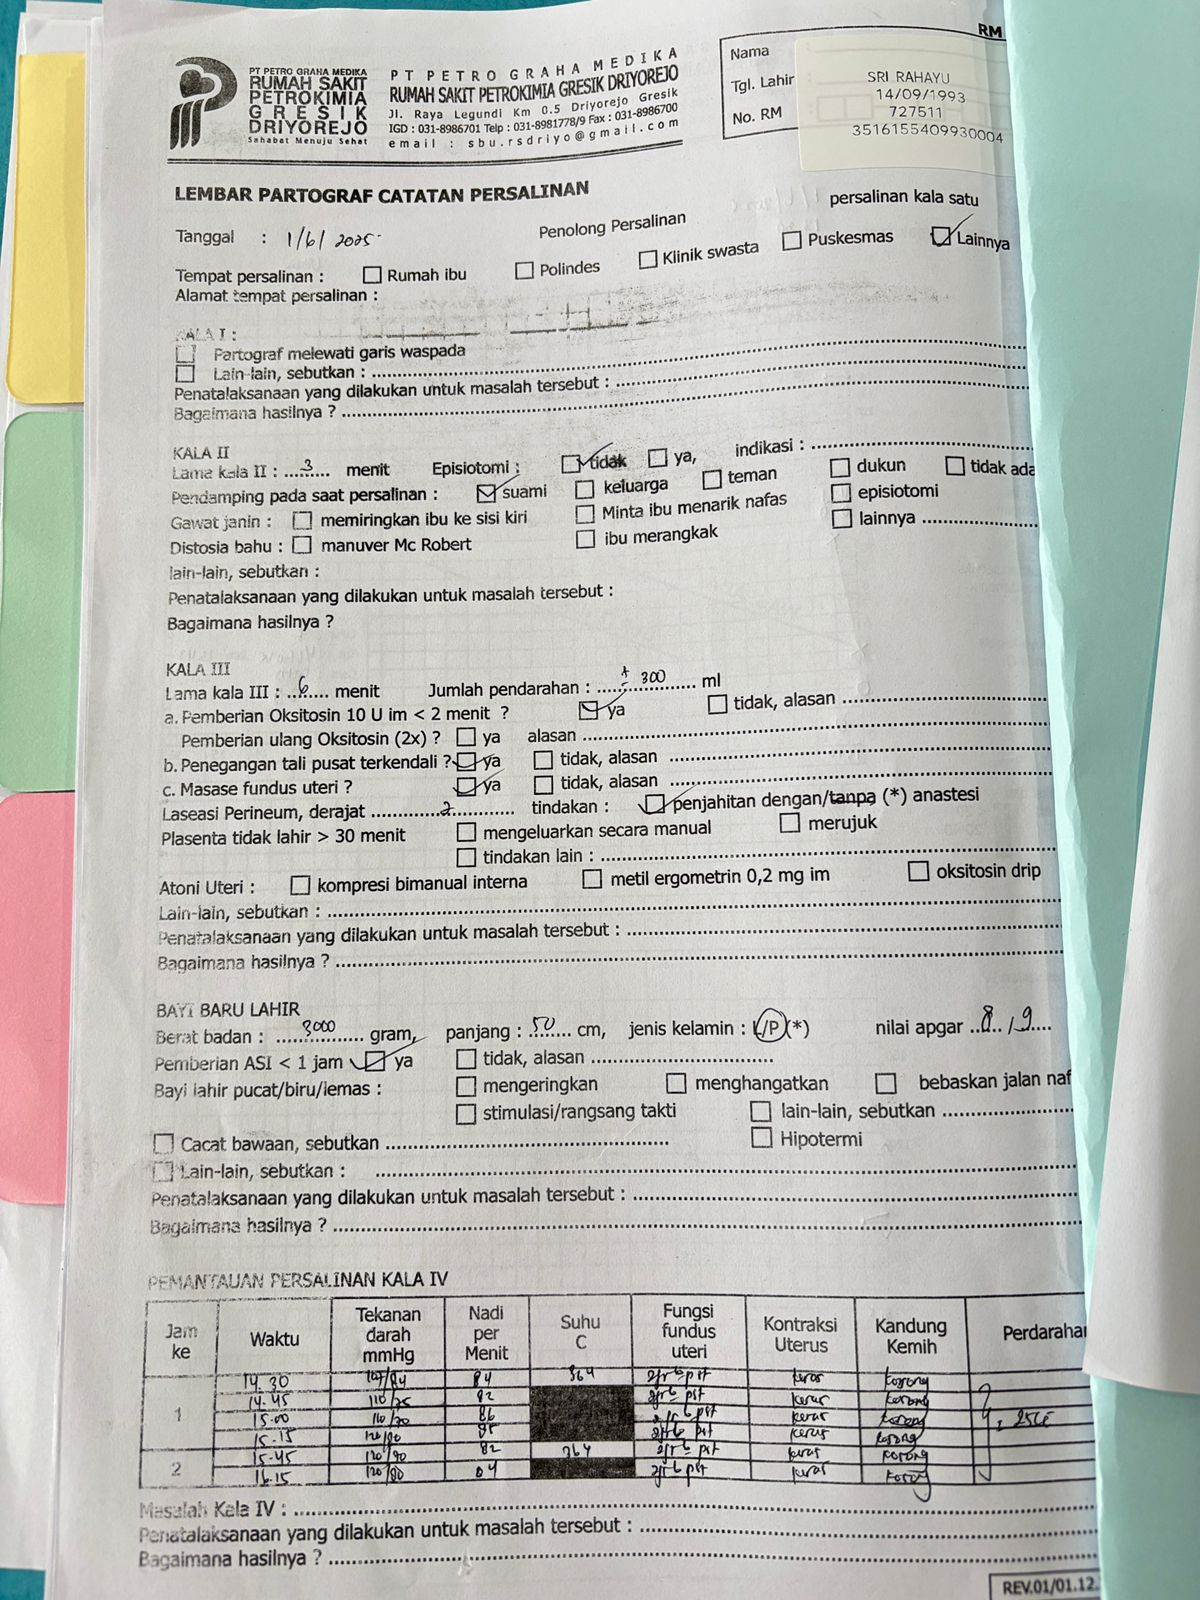 RM
PT PETRO GRAHA MEDIKA
RUMAH SAKIT
PETROKIMIA
GRESIK
DRIYOREJO
Sahabat Menuju Sehat
PT PETRO GRAHA MEDIKA
RUMAH SAKIT PETROKIMIA GRESIK DRIYOREJO
Jl. Raya Legundi Km 0.5 Driyorejo Gresik
IGD : 031-8986701 Telp : 031-8981778/9 Fax : 031-8986700
email : sbu.rsdriyo@gmail.com
Nama
Tgl. Lahir
No. RM
SRI RAHAYU
14/09/1993
727511
3516155409930004
LEMBAR PARTOGRAF CATATAN PERSALINAN
Tanggal : 1/6/2025 Penolong Persalinan persalinan kala satu
Tempat persalinan : Rumah ibu Polindes Klinik swasta Puskesmas Lainnya
Alamat tempat persalinan :
KALA I :
Partograf melewati garis waspada
Lain-lain, sebutkan :
Penatalaksanaan yang dilakukan untuk masalah tersebut :
Bagaimana hasilnya ?
KALA II
Lama kala II : 3 menit Episiotomi : tidak ya, indikasi :
Pendamping pada saat persalinan : suami keluarga teman dukun tidak ada
Gawat janin : memiringkan ibu ke sisi kiri Minta ibu menarik nafas episiotomi
Distosia bahu : manuver Mc Robert ibu merangkak lainnya
lain-lain, sebutkan :
Penatalaksanaan yang dilakukan untuk masalah tersebut :
Bagaimana hasilnya ?
KALA III
Lama kala III : 6 menit Jumlah pendarahan : ± 300 ml
a. Pemberian Oksitosin 10 U im < 2 menit ? ya tidak, alasan
Pemberian ulang Oksitosin (2x) ? ya alasan
b. Penegangan tali pusat terkendali ? ya tidak, alasan
c. Masase fundus uteri ? ya tidak, alasan
Laseasi Perineum, derajat 2 tindakan : penjahitan dengan/tanpa (*) anastesi
Plasenta tidak lahir > 30 menit mengeluarkan secara manual merujuk
tindakan lain :
Atoni Uteri : kompresi bimanual interna metil ergometrin 0,2 mg im oksitosin drip
Lain-lain, sebutkan :
Penatalaksanaan yang dilakukan untuk masalah tersebut :
Bagaimana hasilnya ?
BAYI BARU LAHIR
Berat badan : 3000 gram, panjang : 50 cm, jenis kelamin : L/P (*) nilai apgar 8 / 9
Pemberian ASI < 1 jam ya tidak, alasan
Bayi lahir pucat/biru/lemas : mengeringkan menghangatkan bebaskan jalan naf
stimulasi/rangsang takti lain-lain, sebutkan
Cacat bawaan, sebutkan Hipotermi
Lain-lain, sebutkan :
Penatalaksanaan yang dilakukan untuk masalah tersebut :
Bagaimana hasilnya ?
PEMANTAUAN PERSALINAN KALA IV
Jam ke Waktu Tekanan darah mmHg Nadi per Menit Suhu C Fungsi fundus uteri Kontraksi Uterus Kandung Kemih Perdarahan
1 14.30 84 364 2jr b pst keras kosong
14.45 82 2jr b pst keras kosong
15.00 110/70 86 2jr b pst keras kosong
15.15 120/80 2jr b pst keras kosong
2 15.45 82 364 2jr b pst keras kosong
16.15 120/80 84 2jr b pst keras kosong
Masalah Kala IV :
Penatalaksanaan yang dilakukan untuk masalah tersebut :
Bagaimana hasilnya ?
REV.01/01.12.